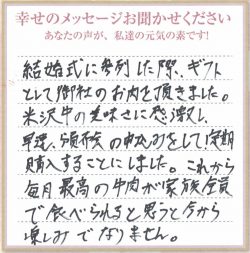 幸せのメッセージお聞かせください
あなたの声が、私達の元気の素です!
結婚式に参列した際、ギフト
として御社のお肉を頂きました。
米沢牛の美味さに感激し、
早速、頒布会の申込みをして定期
購入することにしました。これから
毎月最高の牛肉が家族全員
で食べられると思うと今から
楽しみでなりません。